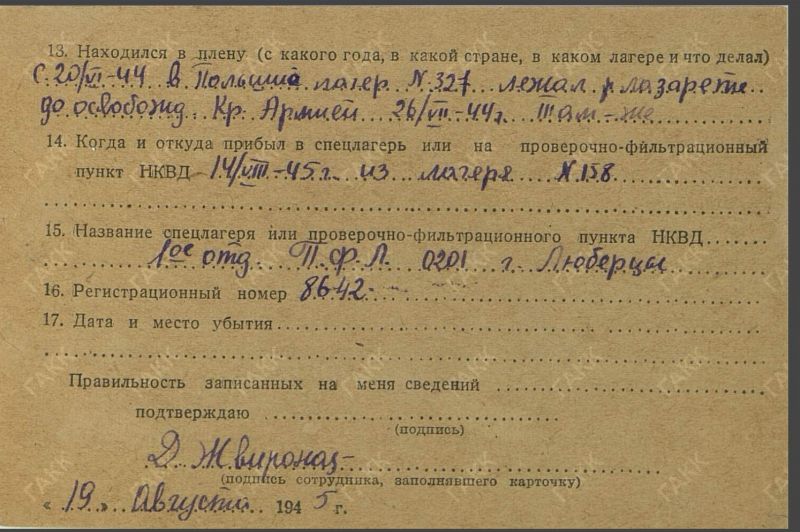 13. Находился в плену (с какого года, в какой стране, в каком лагере и что делал)
с 20/VI-44 в Польша лагер N 327 лежал в лазарете
до освобожд Кр. Армией 26/VII-44 г. там-же
14. Когда и откуда прибыл в спецлагерь или на проверочно-фильтрационный
пункт НКВД 14/VIII-45 г. из лагеря N 158
15. Название спецлагеря или проверочно-фильтрационного пункта НКВД
1ое отд. П.Ф.Л. 0201 г. Люберцы
16. Регистрационный номер 8642
17. Дата и место убытия
Правильность записанных на меня сведений
подтверждаю
(подпись)
(подпись сотрудника, заполнявшего карточку)
« 19 » Августа 1945 г.